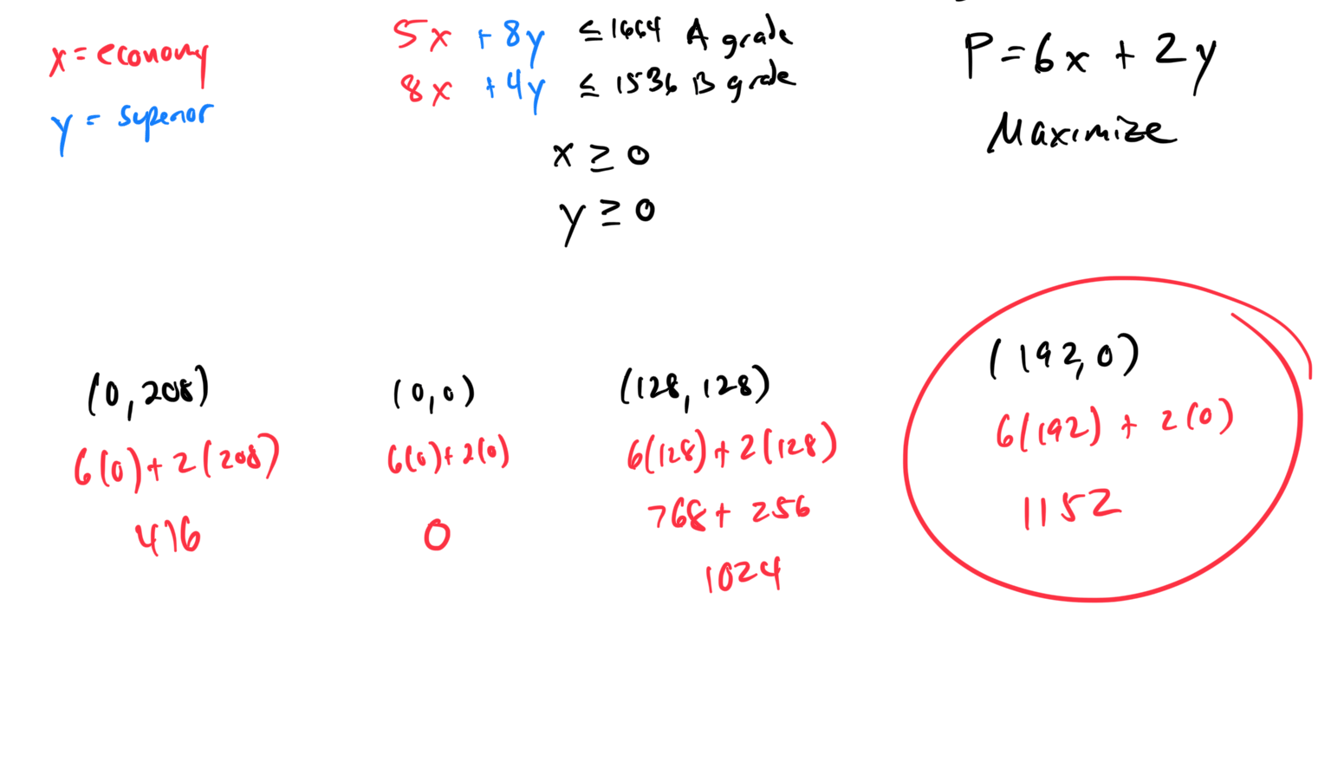 x = economy
y = superior
5x + 8y ≤ 1664 A grade
8x + 4y ≤ 1536 B grade
x ≥ 0
y ≥ 0
P = 6x + 2y
Maximize
(0, 208)
6(0) + 2(208)
416
(0, 0)
6(0) + 2(0)
0
(128, 128)
6(128) + 2(128)
768 + 256
1024
(192, 0)
6(192) + 2(0)
1152